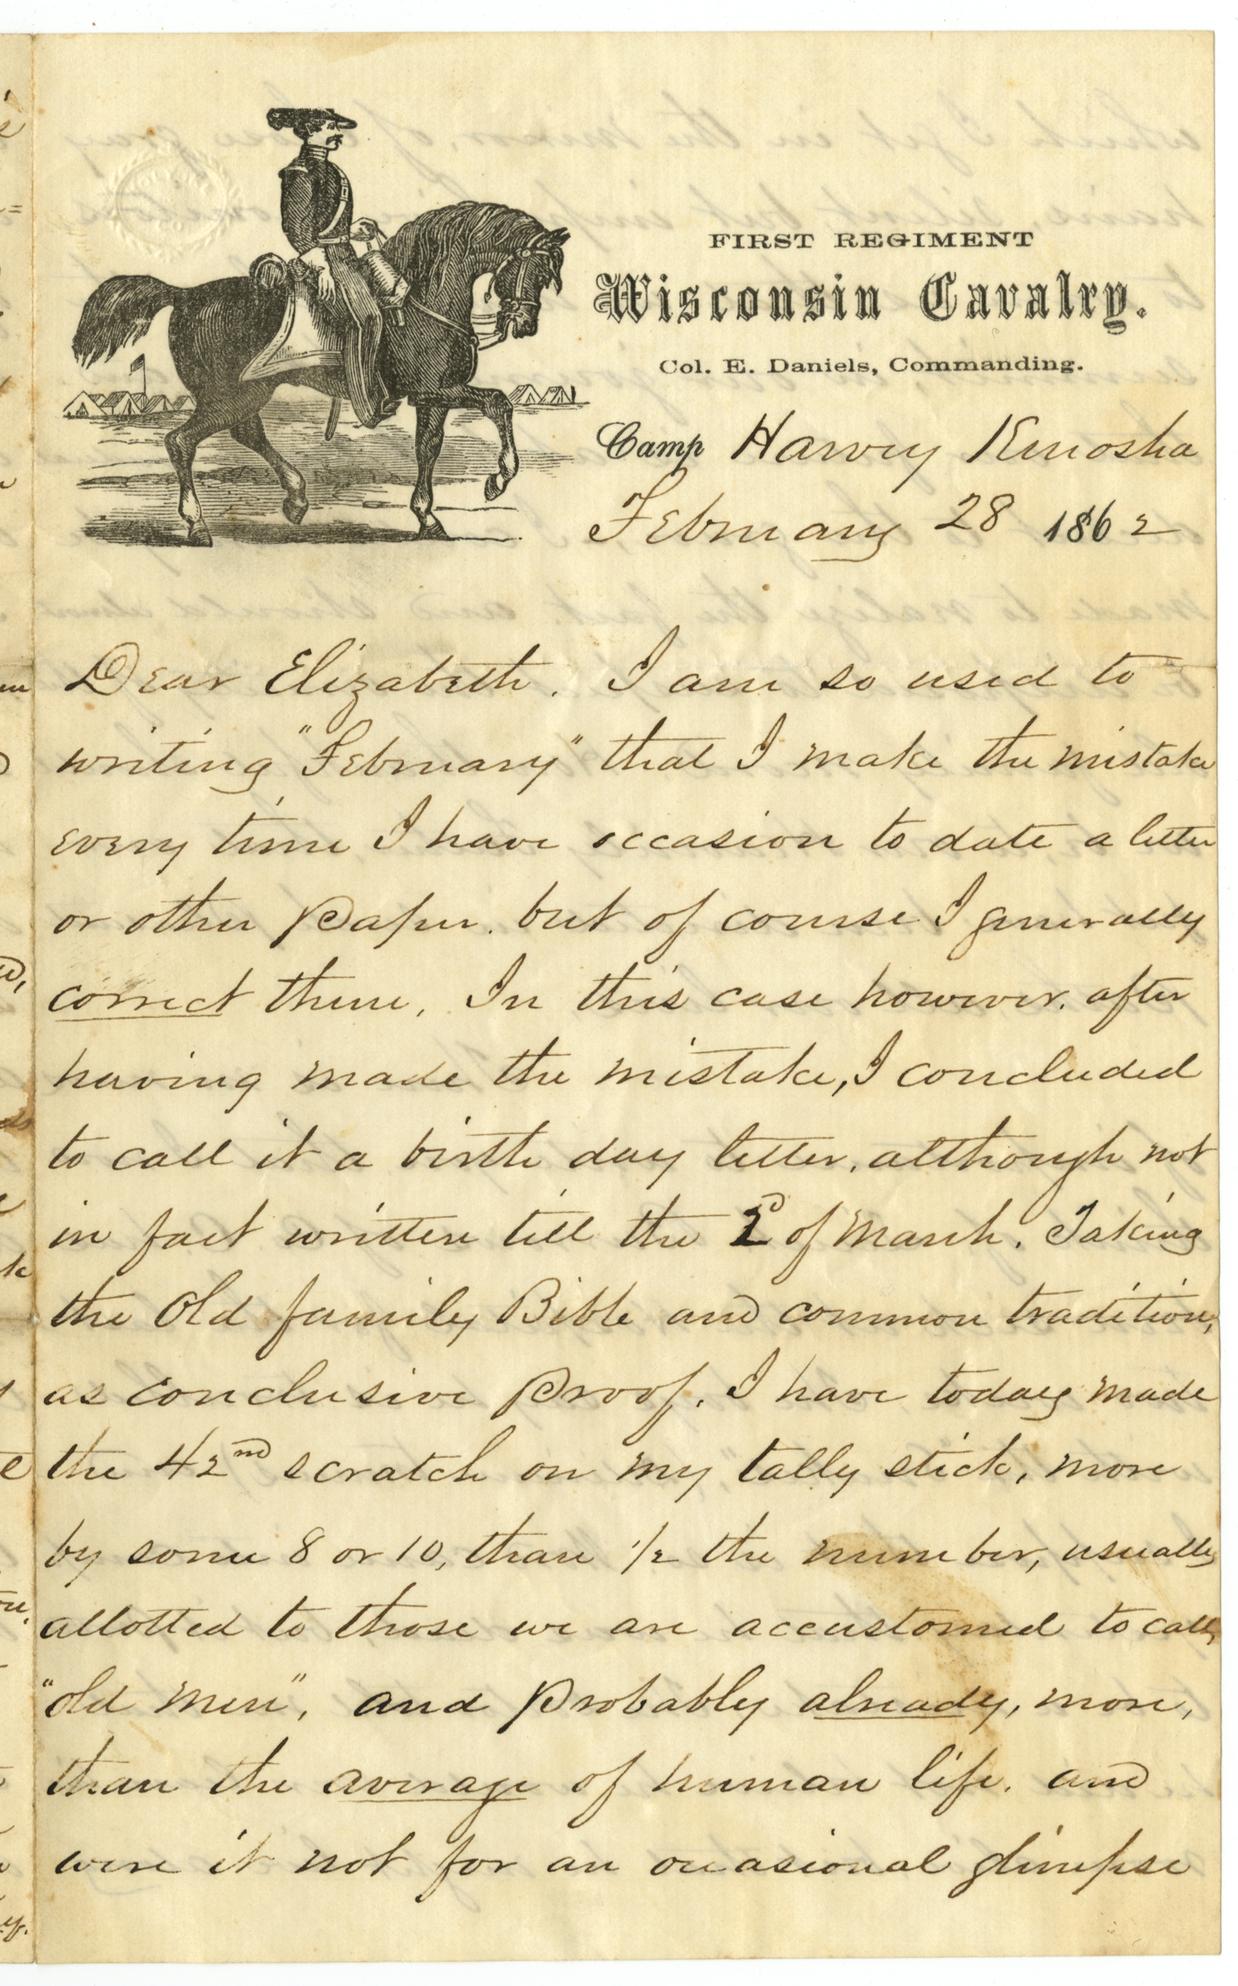 FIRST REGIMENT
Wisconsin Cavalry.
Col. E. Daniels, Commanding.
Camp Harvey Kenosha
February 28 1862
Dear Elizabeth. I am so used to
writing "February" that I make the mistake
every time I have occasion to date a letter
or other Paper. but of course I generally
correct them. In this case however. after
having made the mistake, I concluded
to call it a birth day letter, although not
in fact written till the 2d of March. Taking
the Old family Bible and common tradition,
as conclusive Proof. I have today made
the 42nd scratch on my tally stick, more
by some 8 or 10, than 1/2 the number, usually
allotted to those we are accustomed to call,
"old men", and Probably already, more,
than the average of human life. and
were it not for an occasional glimpse